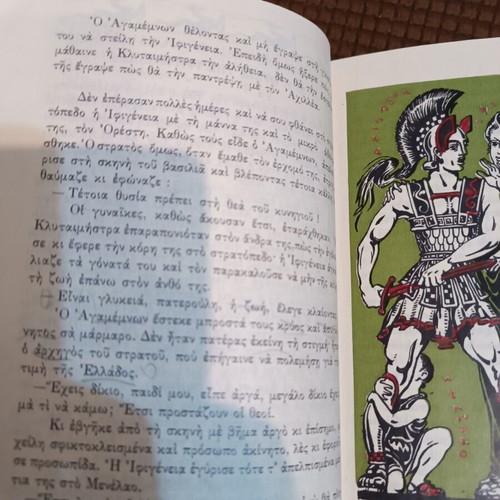 Ὁ Ἀγαμέμνων θέλοντας καὶ μὴ ἔγραψε στὴ
του νὰ στείλη τὴν Ἰφιγένεια. Ἐπειδὴ ὅμως ἤξερε πὼς
μάθαινε ἡ Κλυταιμήστρα τὴν ἀλήθεια, δὲν θὰ τὴν
τῆς ἔγραψε πὼς θὰ τὴν παντρέψη μὲ τὸν Ἀχιλλέα
Δὲν ἐπέρασαν πολλὲς ἡμέρες καὶ νά σου φθάνει στὸ
τόπεδο ἡ Ἰφιγένεια μὲ τὴ μάννα της καὶ τὸ μικρὸ
της, τὸν Ὀρέστη. Καθὼς τοὺς εἶδε ὁ Ἀγαμέμνων,
σθηκε. Ὁ στρατὸς ὅμως, ὅταν ἔμαθε τὸν ἐρχομό της,
ρισε στὴ σκηνὴ τοῦ βασιλιᾶ καὶ βλέποντας τέτοια
θαύμαζε κι ἐφώναζε :
— Τέτοια θυσία πρέπει στὴ θεὰ τοῦ κυνηγιοῦ !
Οἱ γυναῖκες, καθὼς ἄκουσαν ἔτσι, ἐταράχθηκαν
Κλυταιμήστρα ἐπαραπονιόταν στὸν ἄνδρα της, πὼς
σε κι ἔφερε τὴν κόρη της στὸ στρατόπεδο· ἡ Ἰφιγένεια
λιαζε τὰ γόνατά του καὶ τὸν παρακαλοῦσε νὰ μὴν τῆς
τὴ ζωὴ ἐπάνω στὸν ἀνθό της.
— Εἶναι γλυκειά, πατερούλη, ἡ ζωή, ἔλεγε κλαίοντας
Ὁ Ἀγαμέμνων ἔστεκε μπροστά τους κρύος καὶ
νητος σὰ μάρμαρο. Δὲν ἦταν πατέρας ἐκείνη τὴ στιγμή·
ὁ ἀρχηγὸς τοῦ στρατοῦ, ποὺ ἐπήγαινε νὰ πολεμήση γιὰ
τιμὴ τῆς Ἑλλάδος.
— Ἔχεις δίκιο, παιδί μου, εἶπε ἀργά, μεγάλο δίκιο
μὰ τί νὰ κάμω; Ἔτσι προστάζουν οἱ θεοί.
Κι ἐβγῆκε ἀπὸ τὴ σκηνὴ μὲ βῆμα ἀργὸ κι ἐπίσημο,
χείλη σφικτοκλεισμένα καὶ πρόσωπο ἀκίνητο, λὲς κι ἐφοροῦ
σε προσωπίδα. Ἡ Ἰφιγένεια ἐγύρισε τότε τ' ἀπελπισμένα
τια της στὸ Μενέλαο.